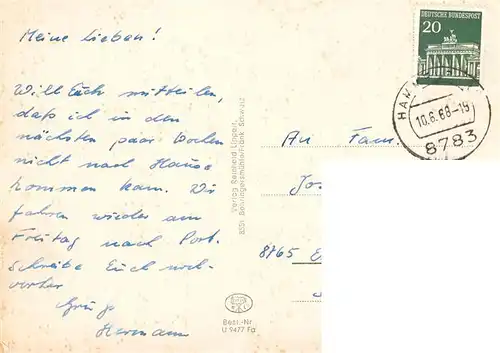 Meine Lieben!
Will Euch mitteilen,
daß ich in den
nächsten paar Wochen
nicht nach Hause
kommen kann. Wir
fahren wieder am
Freitag nach Port.
Schreibe Euch noch
vorher
Grüße
Hermann
Verlag Reinhold Lippert,
8551 Behringersmühle/Fränk. Schweiz
Best.-Nr.
U 9477 Fg
DEUTSCHE BUNDESPOST
20
HAMM
10.6.68-19
8783
An Fam.
Jo
8765 E